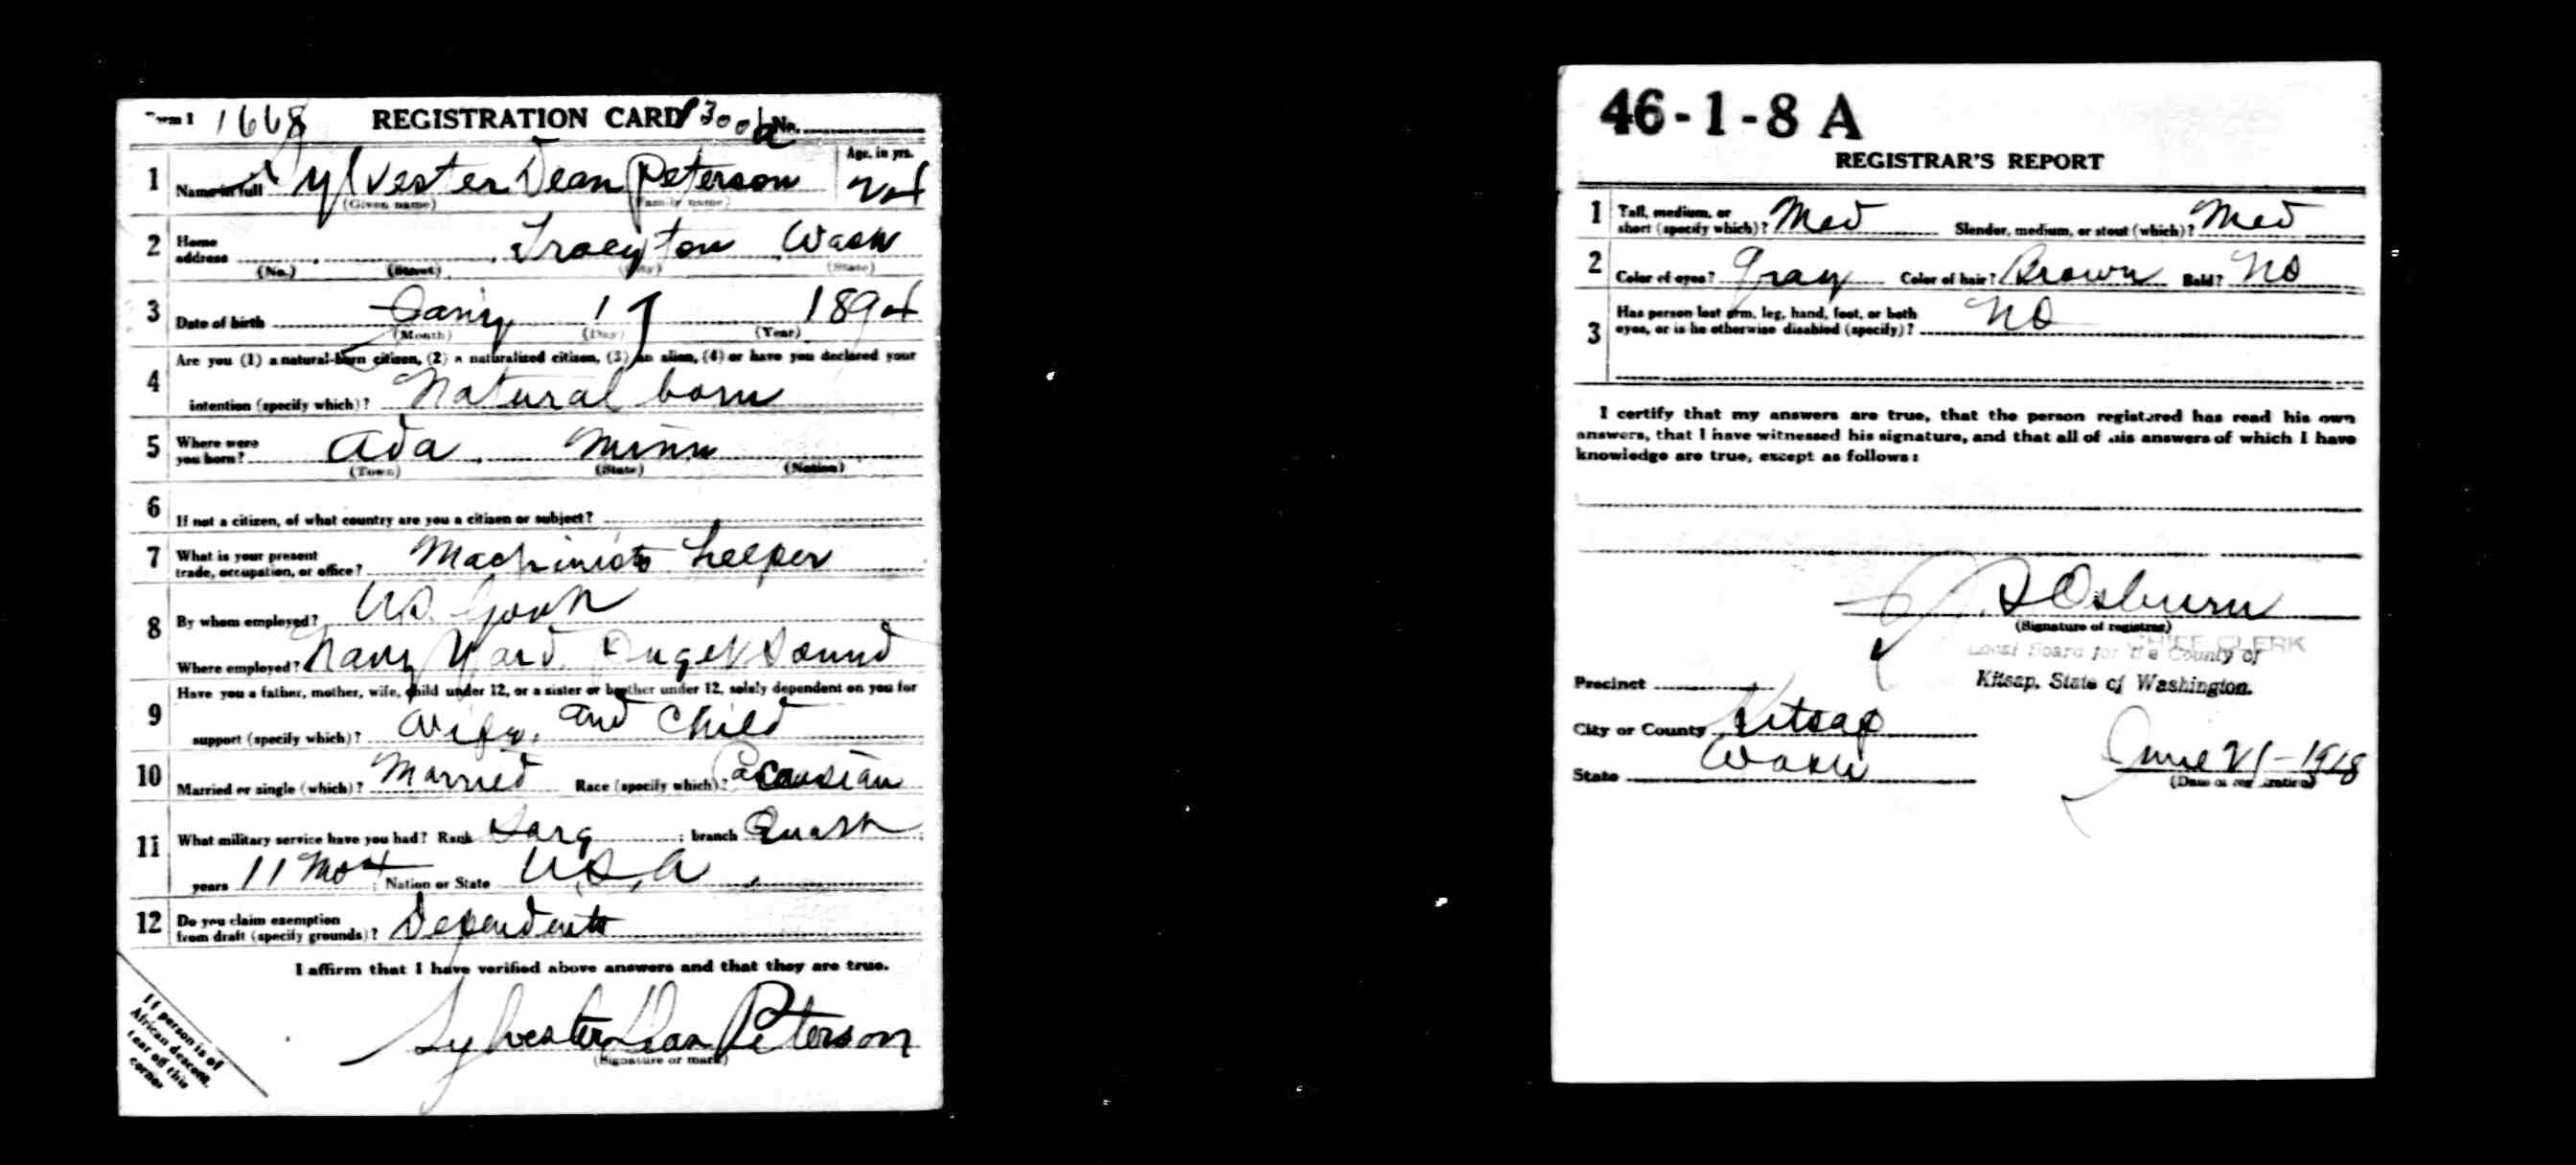 Form 1 1668 REGISTRATION CARD No.
1 Name in full Sylvester Dean Peterson Age, in yrs. 24
(Given name) (Family name)
2 Home address Tracyton Wash
(No.) (Street) (City) (State)
3 Date of birth Jany 17 1894
(Month) (Day) (Year)
4 Are you (1) a natural-born citizen, (2) a naturalized citizen, (3) an alien, (4) or have you declared your
intention (specify which)? Natural born
5 Where were you born? Ada Minn
(Town) (State) (Nation)
6 If not a citizen, of what country are you a citizen or subject?
7 What is your present trade, occupation, or office? Machinists helper
8 By whom employed? U.S. Govt
Where employed? Navy Yard Puget Sound
9 Have you a father, mother, wife, child under 12, or a sister or brother under 12, solely dependent on you for
support (specify which)? Wife, and Child
10 Married or single (which)? Married Race (specify which)?
11 What military service have you had? Rank Sarg ; branch
years 11 Mo ; Nation or State U.S.A.
12 Do you claim exemption from draft (specify grounds)? Dependents
I affirm that I have verified above answers and that they are true.
Sylvester Dean Peterson
(Signature or mark)
If person is of
African descent,
tear off this
corner
46-1-8 A
REGISTRAR'S REPORT
1 Tall, medium, or short (specify which)? Med Slender, medium, or stout (which)? Med
2 Color of eyes? Gray Color of hair? Brown Bald? No
3 Has person lost arm, leg, hand, foot, or both eyes, or is he otherwise disabled (specify)? No
I certify that my answers are true, that the person registered has read his own
answers, that I have witnessed his signature, and that all of his answers of which I have
knowledge are true, except as follows:
Osburn
(Signature of registrar)
CHIEF CLERK
Local Board for the County of
Precinct Kitsap, State of Washington.
City or County Kitsap
State Wash June 21-1918
(Date of registration)